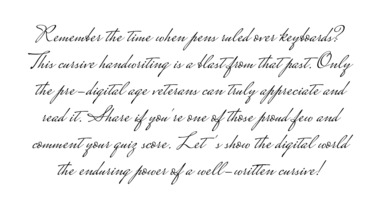 Remember the time when pens ruled over keyboards?
This cursive handwriting is a blast from that past. Only
the pre-digital age veterans can truly appreciate and
read it. Share if you're one of those proud few and
comment your quiz score. Let's show the digital world
the enduring power of a well-written cursive!